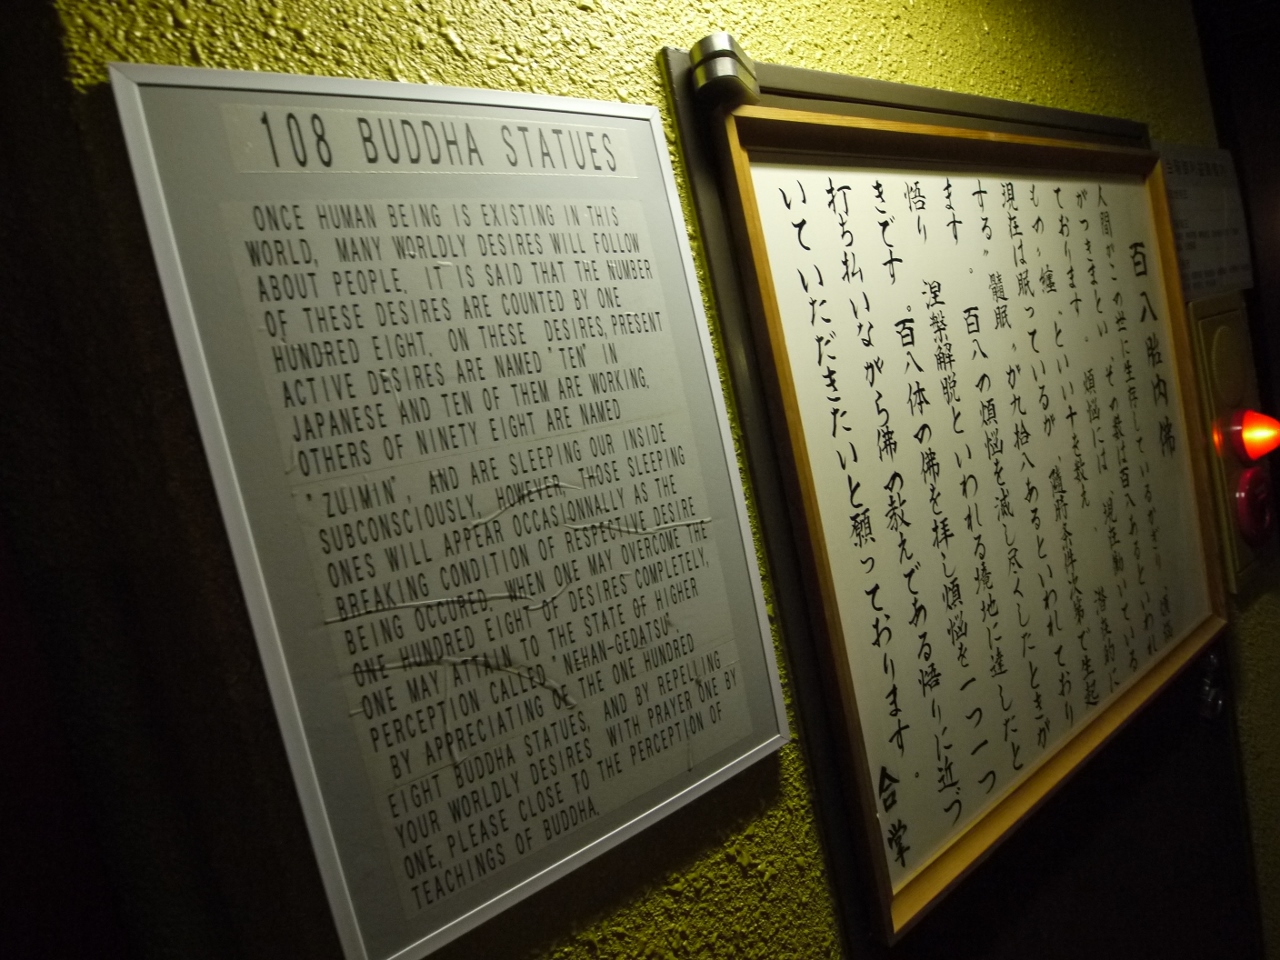 108 BUDDHA STATUES
ONCE HUMAN BEING IS EXISTING IN THIS
WORLD, MANY WORLDLY DESIRES WILL FOLLOW
ABOUT PEOPLE. IT IS SAID THAT THE NUMBER
OF THESE DESIRES ARE COUNTED BY ONE
HUNDRED EIGHT. ON THESE DESIRES, PRESENT
ACTIVE DESIRES ARE NAMED "TEN" IN
JAPANESE AND TEN OF THEM ARE WORKING.
OTHERS OF NINETY EIGHT ARE NAMED
"ZUIMIN", AND ARE SLEEPING OUR INSIDE
SUBCONSCIOUSLY. HOWEVER, THOSE SLEEPING
ONES WILL APPEAR OCCASIONNALLY AS THE
BREAKING CONDITION OF RESPECTIVE DESIRE
BEING OCCURED. WHEN ONE MAY OVERCOME THE
ONE HUNDRED EIGHT OF DESIRES COMPLETELY,
ONE MAY ATTAIN TO THE STATE OF HIGHER
PERCEPTION CALLED "NEHAN-GEDATSU".
BY APPRECIATING OF THE ONE HUNDRED
EIGHT BUDDHA STATUES, AND BY REPELLING
YOUR WORLDLY DESIRES WITH PRAYER ONE BY
ONE, PLEASE CLOSE TO THE PERCEPTION OF
TEACHINGS OF BUDDHA.
百八胎内佛
人間がこの世に生存しているかぎり
がつきまとい、その数は百八あるといわれ
ております。煩悩には、現在動いている
もの、纏、といい十を数え、潜在的に
現在は眠っているが、随時条件次第で生起
する〃。髓眠〃が九拾八あるといわれており
ます。百八の煩悩を滅し尽くしたときが
悟り 涅槃解脱といわれる境地に達したと
きです。百八体の佛を拝し煩悩を一つ一つ
打ち払いながら佛の教えである悟りに近づ
いていただきたいと願っております。
合掌